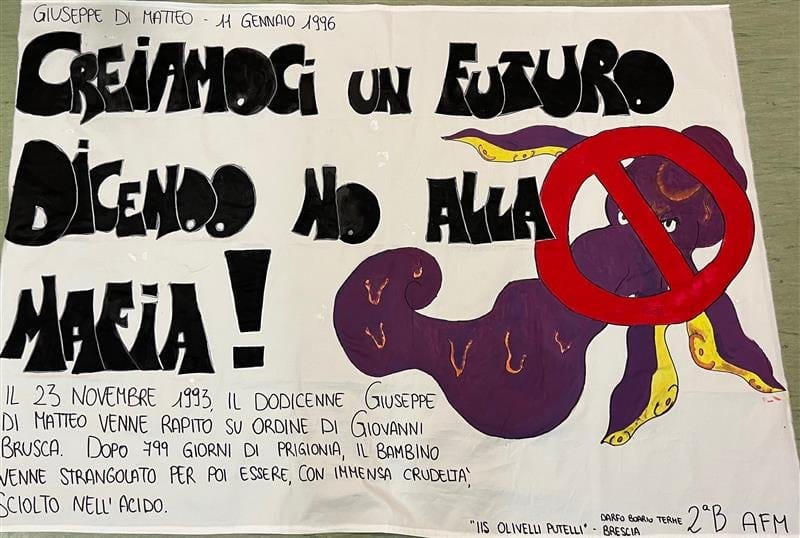 GIUSEPPE DI MATTEO - 11 GENNAIO 1996
CREIAMOCI UN FUTURO
DICENDO NO ALLA
MAFIA!
IL 23 NOVEMBRE 1993, IL DODICENNE GIUSEPPE
DI MATTEO VENNE RAPITO SU ORDINE DI GIOVANNI
BRUSCA. DOPO 799 GIORNI DI PRIGIONIA, IL BAMBINO
VENNE STRANGOLATO PER POI ESSERE, CON IMMENSA CRUDELTÀ,
SCIOLTO NELL'ACIDO.
"IIS OLIVELLI PUTELLI" - DARFO BOARIO TERME
BRESCIA
2ªB AFM